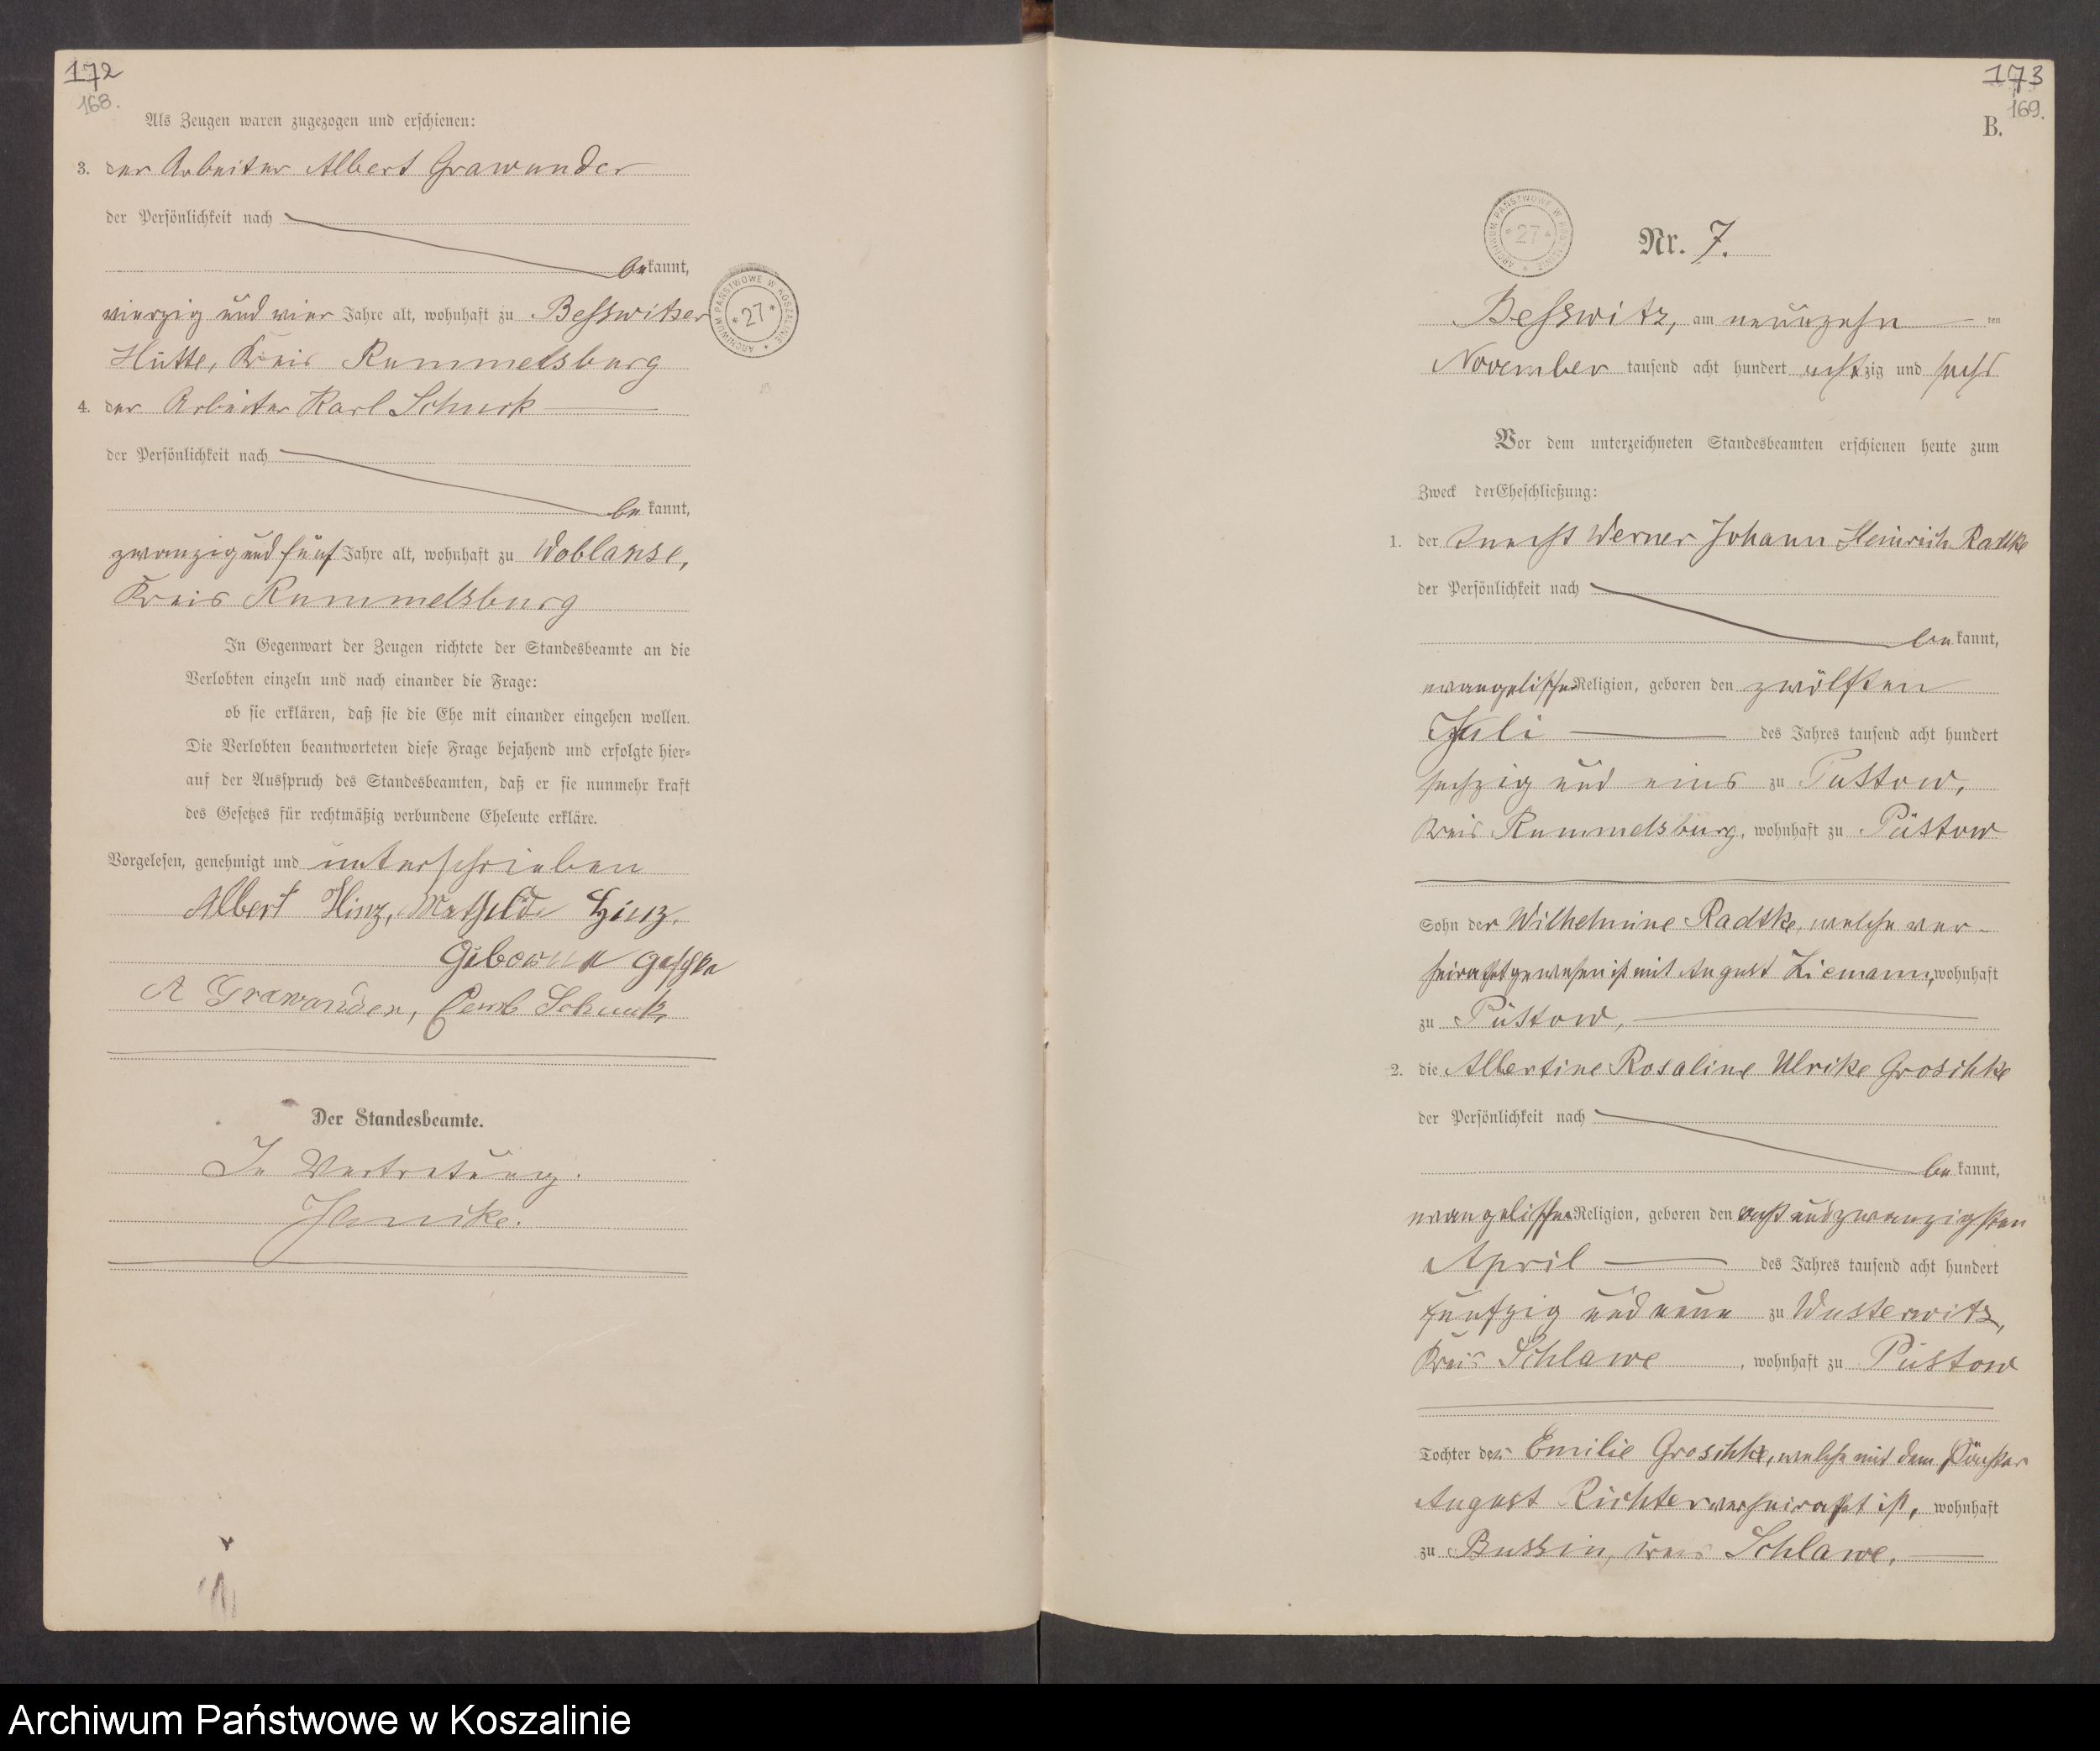 172
168.
Als Zeugen waren zugezogen und erschienen:
3. der Arbeiter Albert Grawunder
der Persönlichkeit nach
bekannt,
vierzig und vier Jahre alt, wohnhaft zu Besswitzer
Hütte, Kreis Rummelsburg
4. der Arbeiter Karl Schuck
der Persönlichkeit nach
be kannt,
zwanzig und fünf Jahre alt, wohnhaft zu Woblanse,
Kreis Rummelsburg
In Gegenwart der Zeugen richtete der Standesbeamte an die
Verlobten einzeln und nach einander die Frage:
ob sie erklären, daß sie die Ehe mit einander eingehen wollen.
Die Verlobten beantworteten diese Frage bejahend und erfolgte hier=
auf der Ausspruch des Standesbeamten, daß er sie nunmehr kraft
des Gesetzes für rechtmäßig verbundene Eheleute erkläre.
Vorgelesen, genehmigt und unterschrieben
Albert Hinz, Mathilde Hinz,
Geborne
A Grawunder,
Der Standesbeamte.
In Vertretung.
ARCHIWUM PAŃSTWOWE W KOSZALINIE
* 27 *
173
169.
B.
ARCHIWUM PAŃSTWOWE W KOSZALINIE
* 27 *
Nr. 7.
Besswitz, am neunzehn ten
November tausend acht hundert achtzig und sechs
Vor dem unterzeichneten Standesbeamten erschienen heute zum
Zweck der Eheschließung:
1. der Knecht Werner Johann Heinrich Radtke
der Persönlichkeit nach
be kannt,
evangelischer Religion, geboren den zwölften
Juli des Jahres tausend acht hundert
sechzig und eins zu Püstow,
Kreis Rummelsburg, wohnhaft zu Püstow
Sohn der Wilhelmine Radtke, welche ver-
heirathet gewesen ist mit August Ziemann, wohnhaft
zu Püstow,
2. die Albertine Rosaline Ulrike Groschke
der Persönlichkeit nach
be kannt,
evangelischer Religion, geboren den acht und zwanzigsten
April des Jahres tausend acht hundert
fünfzig und neun zu Wusterwitz,
Kreis Schlawe, wohnhaft zu Püstow
Tochter der Emilie Groschke, welche mit dem
August Richter verheirathet ist, wohnhaft
zu Bussin, Kreis Schlawe.
Archiwum Państwowe w Koszalinie